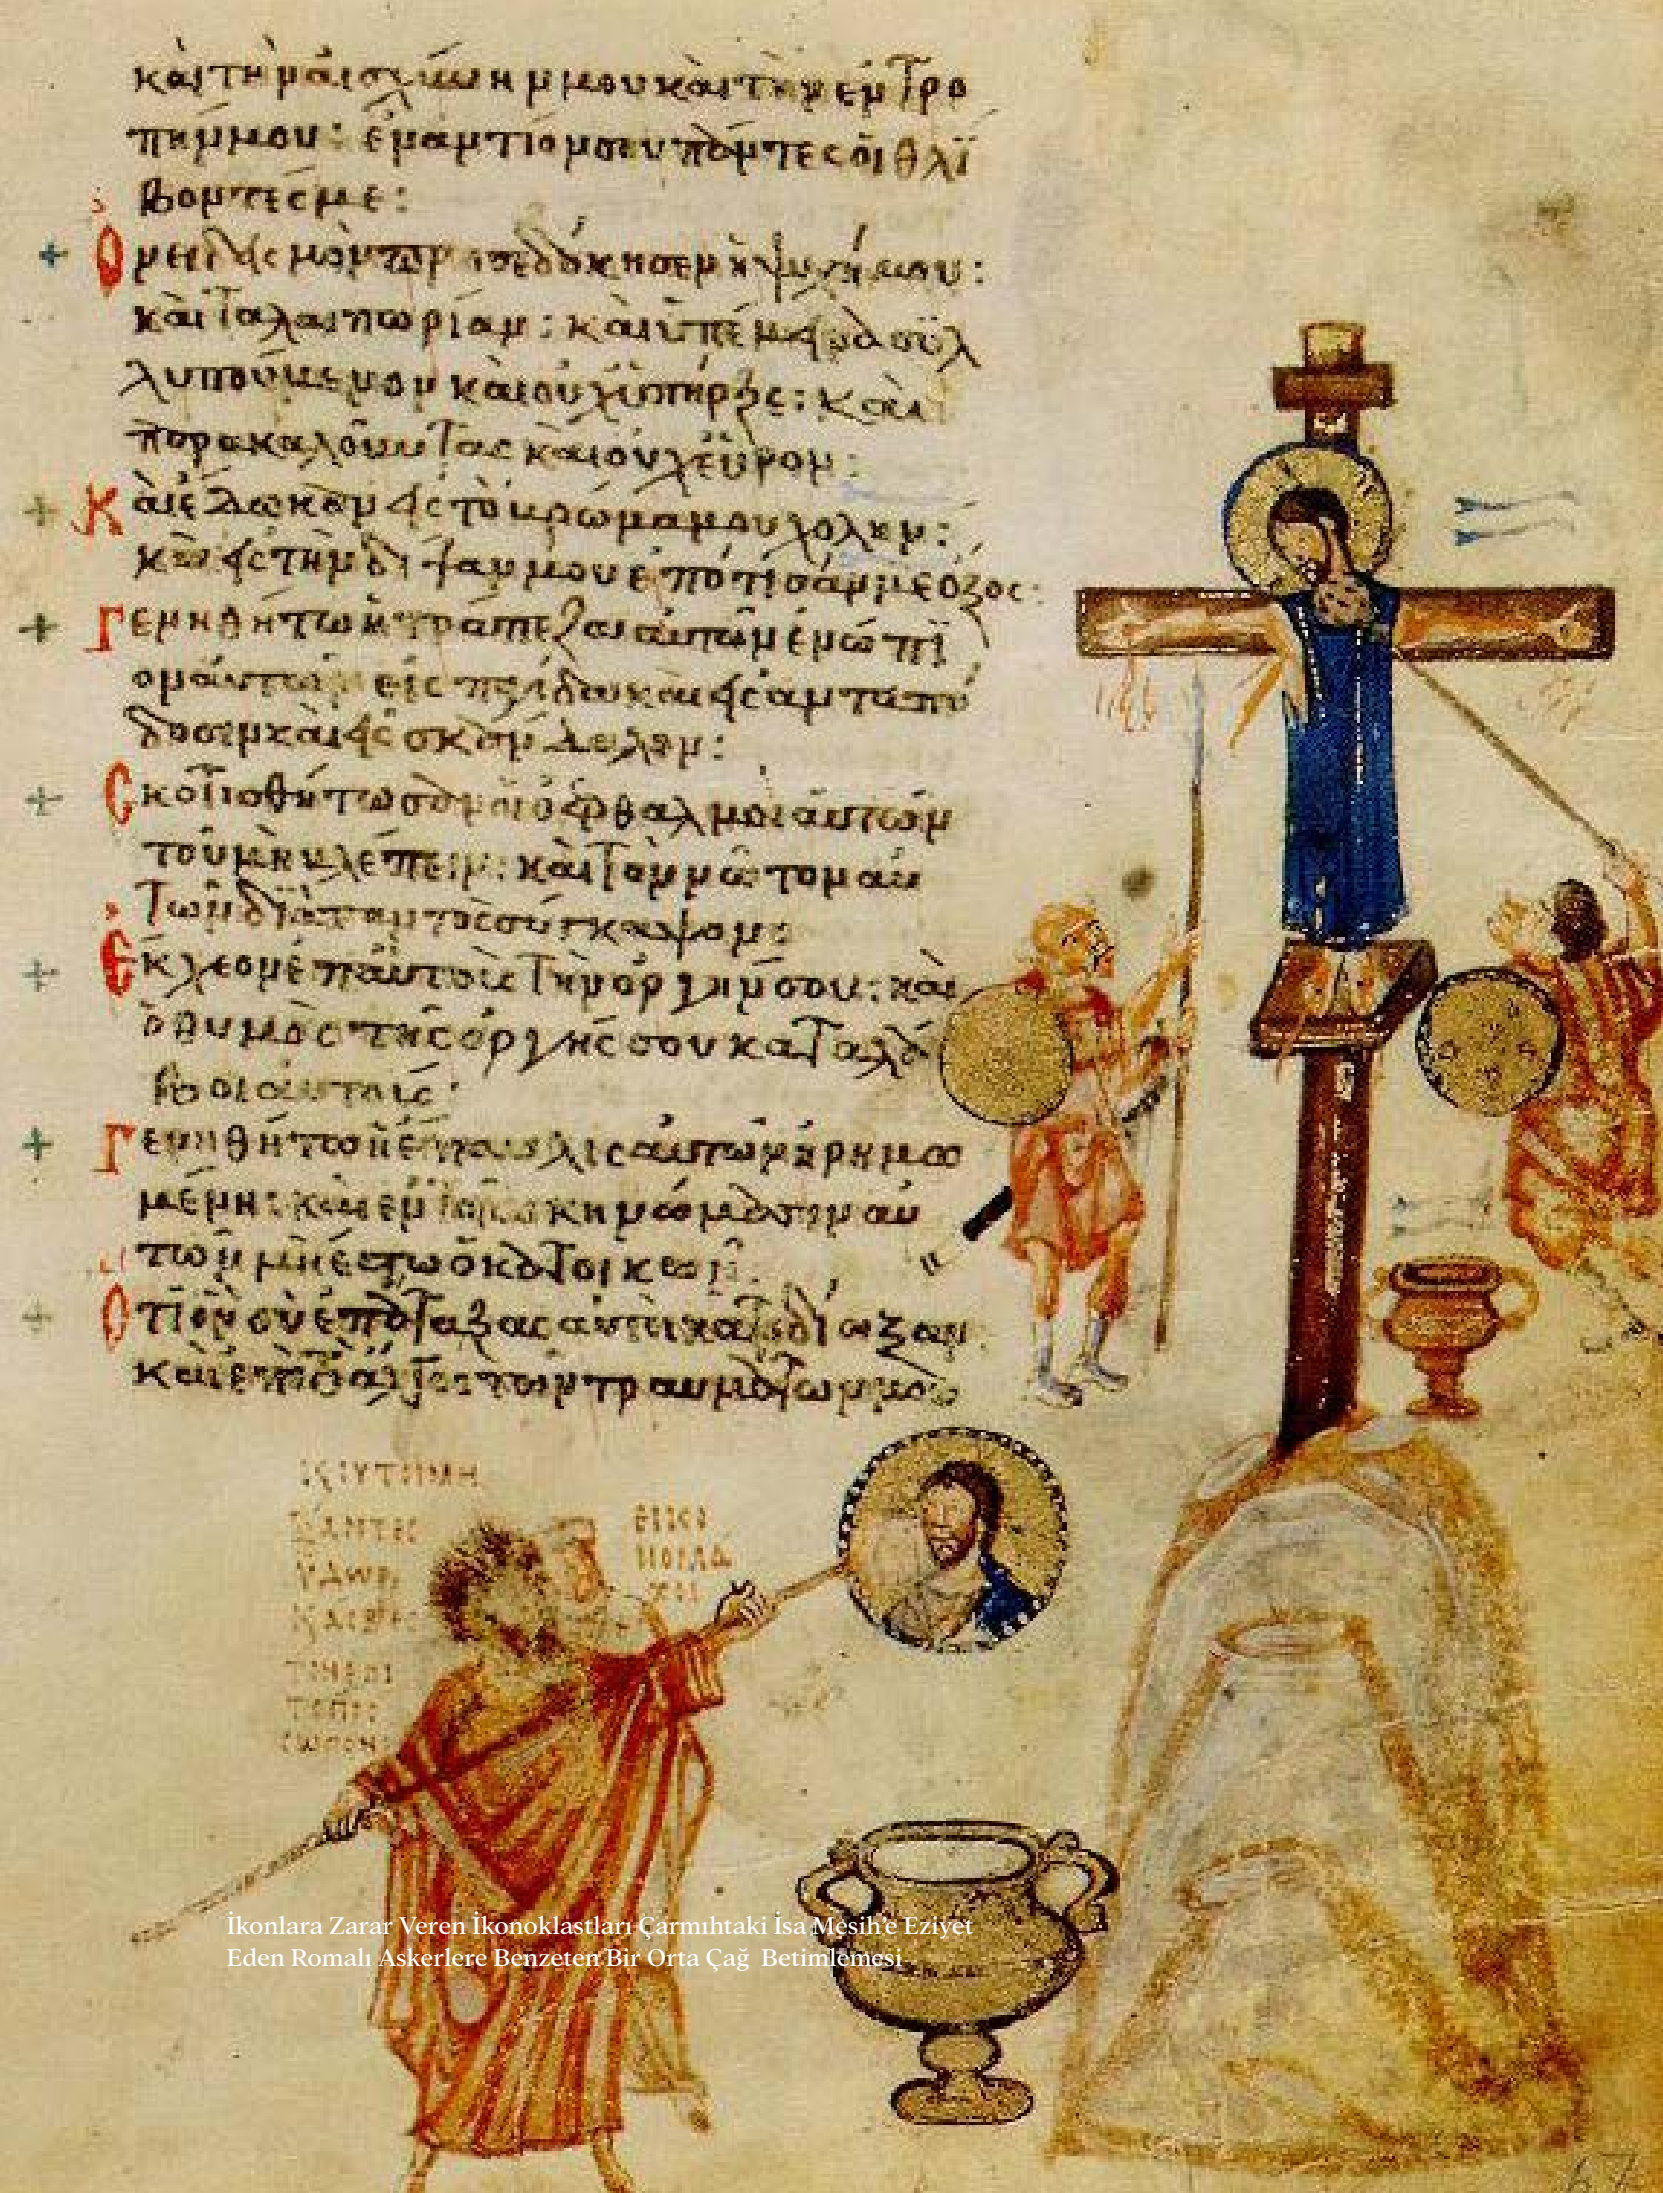 καὶ τὴν αἰσχύνην μου καὶ τὴν ἐντρο
πήν μου: ἐναντίον σου πάντες οἱ θλί
βοντές με:
Ὀνειδισμὸν προσεδόκησεν ἡ ψυχή μου:
καὶ ταλαιπωρίαν: καὶ ὑπέμεινα συλ
λυπούμενον καὶ οὐχ ὑπῆρξε: καὶ
παρακαλοῦντας καὶ οὐχ εὗρον:
Καὶ ἔδωκαν εἰς τὸ βρῶμά μου χολήν:
καὶ εἰς τὴν δίψαν μου ἐπότισάν με ὄξος:
Γενηθήτω ἡ τράπεζα αὐτῶν ἐνώπι
ον αὐτῶν εἰς παγίδα καὶ εἰς ἀνταπό
δοσιν καὶ εἰς σκάνδαλον:
Σκοτισθήτωσαν οἱ ὀφθαλμοὶ αὐτῶν
τοῦ μὴ βλέπειν: καὶ τὸν νῶτον αὐ
τῶν διὰ παντὸς σύγκαμψον:
Ἔκχεον ἐπ' αὐτοὺς τὴν ὀργήν σου: καὶ
ὁ θυμὸς τῆς ὀργῆς σου καταλά
βοι αὐτούς:
Γενηθήτω ἡ ἔπαυλις αὐτῶν ἠρημω
μένη: καὶ ἐν τοῖς σκηνώμασιν αὐ
τῶν μὴ ἔστω ὁ κατοικῶν:
Ὅτι ὃν σὺ ἐπάταξας αὐτοὶ κατεδίωξαν
καὶ ἐπὶ τὸ ἄλγος τῶν τραυμάτων μου
İkonlara Zarar Veren İkonoklastları Çarmıhtaki İsa Mesih'e Eziyet
Eden Romalı Askerlere Benzeten Bir Orta Çağ Betimlemesi